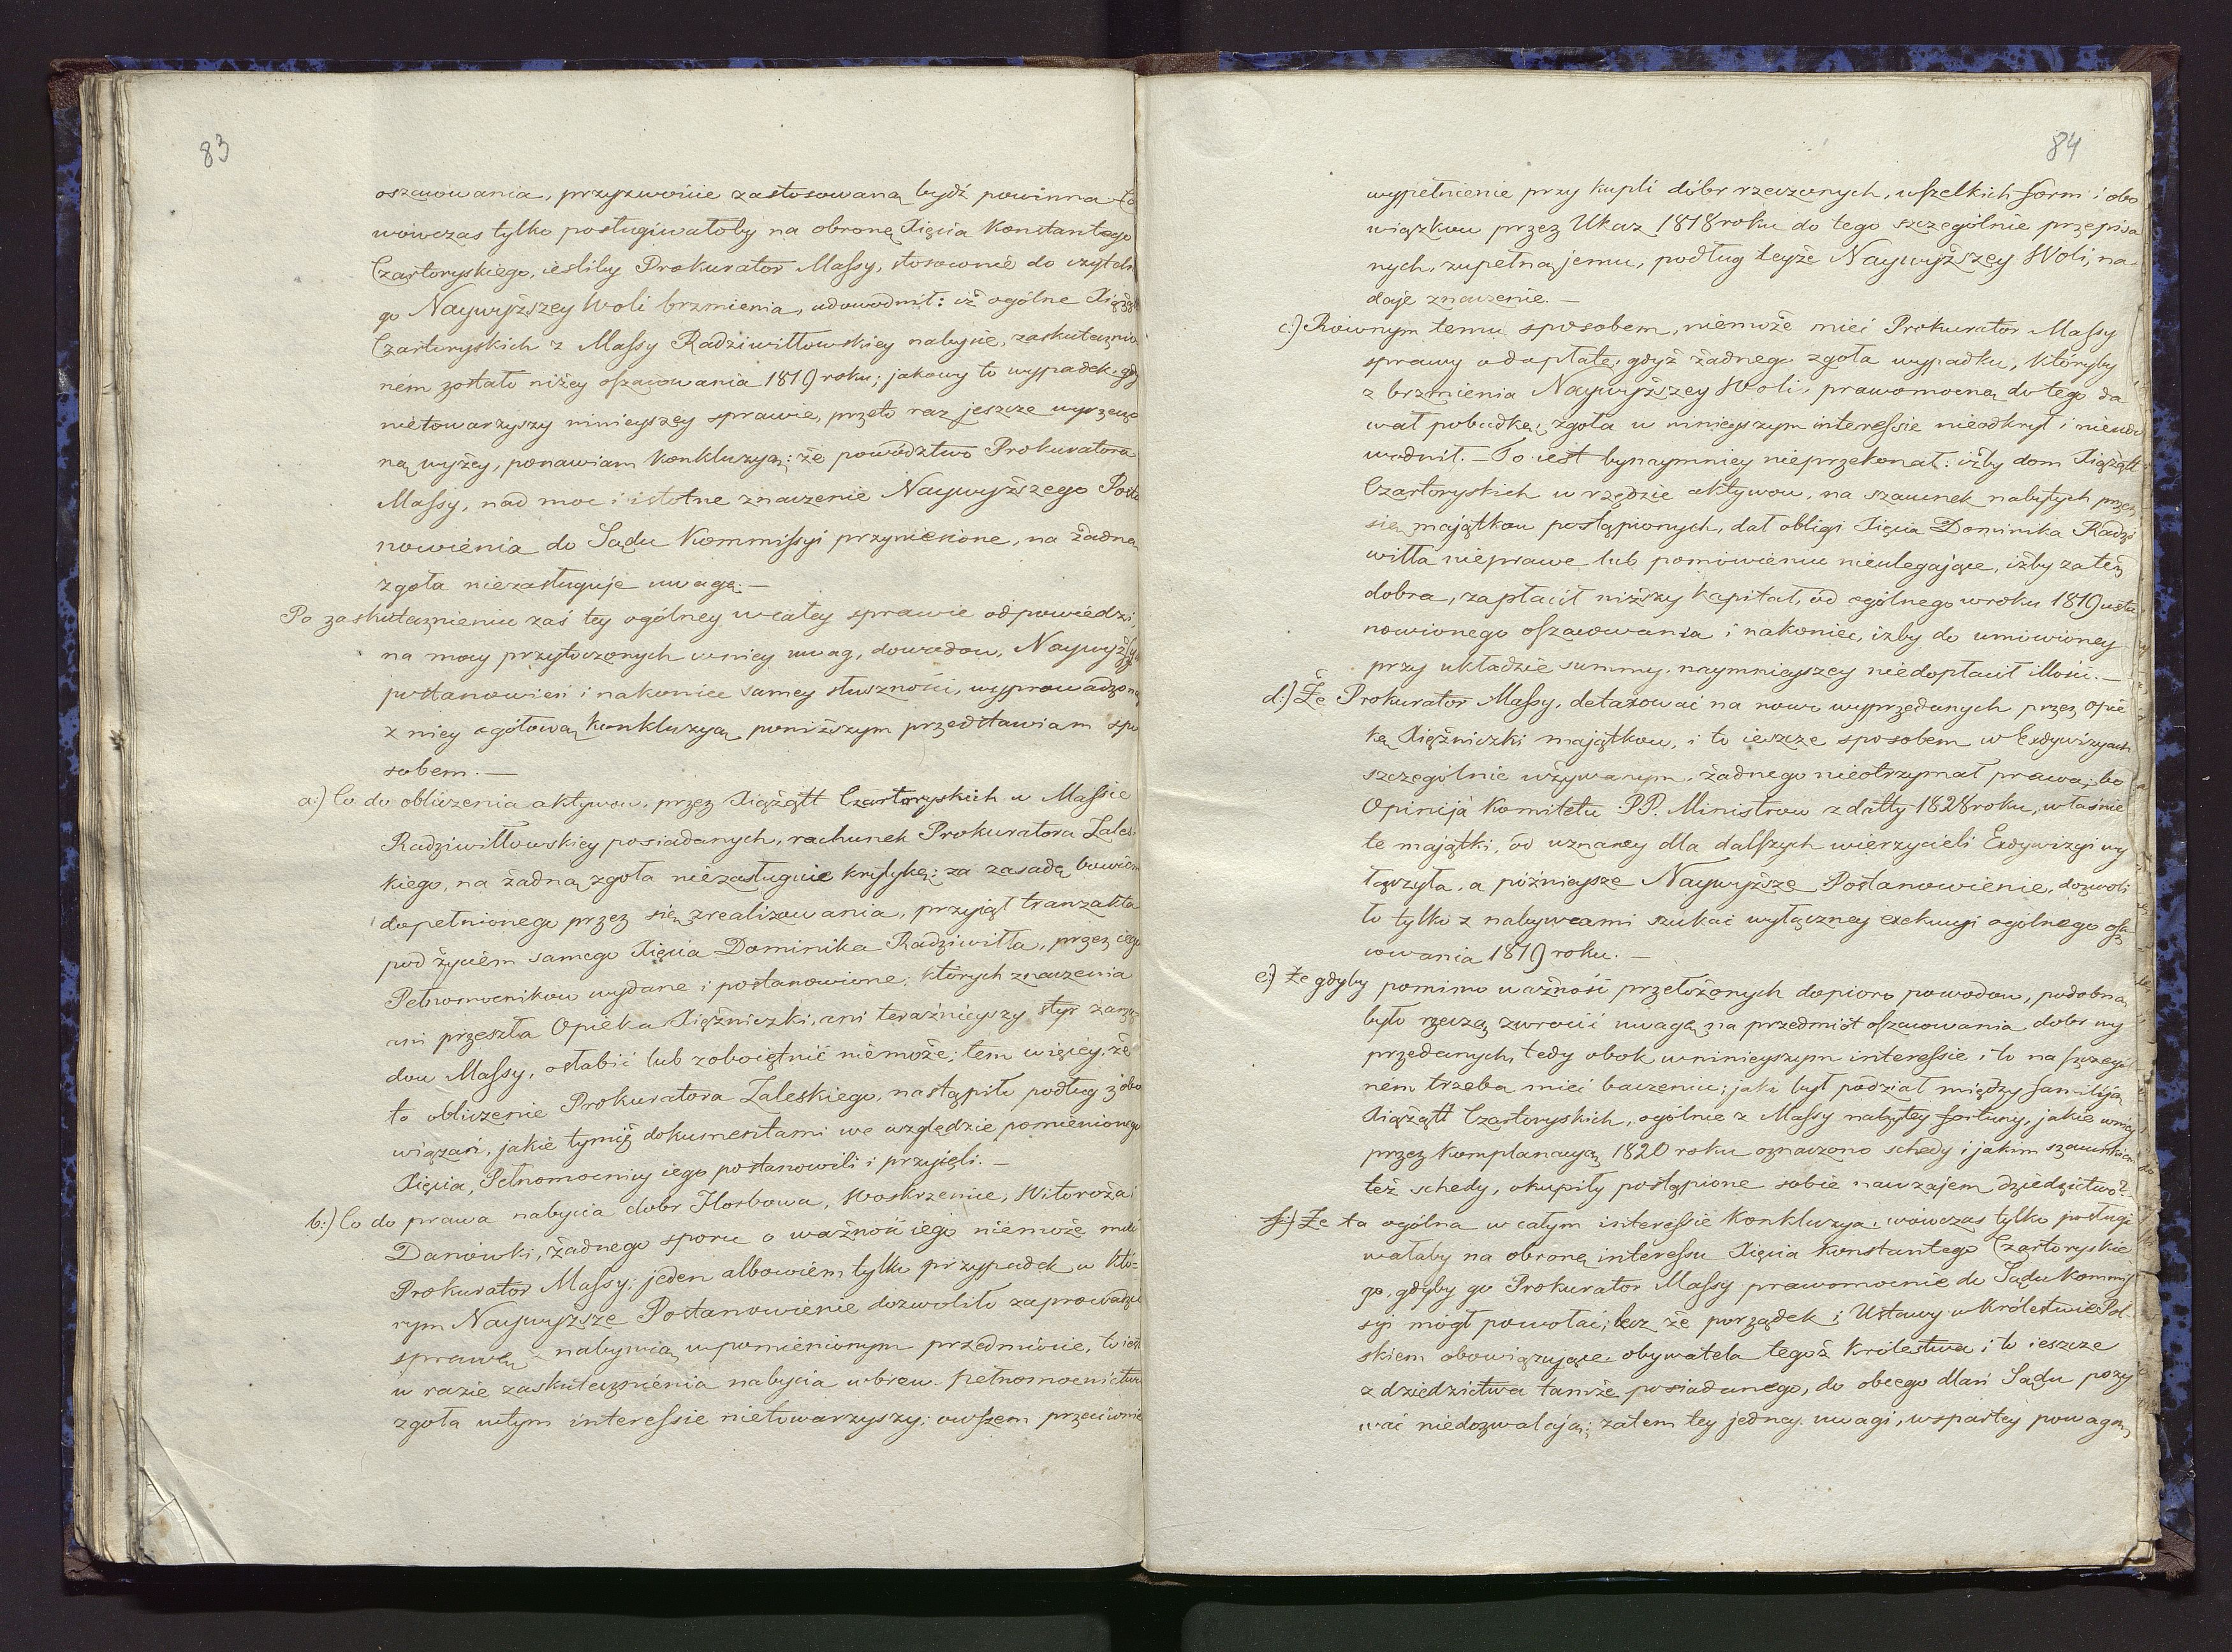 83
oszacowania, przyzwoicie zastosowaną bydź powinna
wówczas tylko posługiwałoby na obronę Xięcia Konstantego
Czartoryskiego, iesliby Prokurator Massy, stosownie do
go Naywyższey Woli brzmienia, udowodnił: iż ogólne Xiążąt
Czartoryskich z Massy Radziwiłłowskiey nabycie, zaskutecznio
ném zostało niżey oszacowania 1819 roku; jakowy to wypadek gdy
nietowarzyszy ninieyszey sprawie, przeto raz jeszcze wyrzeczo
ną wyżey, ponawiam konkluzyą: że powództwo Prokuratora
Massy, nad moc i istotne znaczenie Naywyższego Posta
nowienia do Sądu Kommissyi przyniesione, na żadną
zgoła niezasługuje uwagę.—
Po zaskutecznieniu zaś tey ogólney w całey sprawie odpowiedzi,
na mocy przytoczonych w niey uwag, dowodow, Naywyższych
postanowień i nakoniec samey słuszności, wyprowadzoną
z niey ogółową konkluzyą poniższym przedstawiam spo
sobem.—
a:) Co do obliczenia aktywow, przez Xiążątt Czartoryskich w Massie
Radziwiłłowskiey posiadanych, rachunek Prokuratora Zales
kiego, na żadną zgoła niezasługuie krytykę; za zasadę bowiem
dopełnionego przez się zrealizowania, przyjął tranzakta
pod życiem samego Xięcia Dominika Radziwiłła, przez iego
Pełnomocnikow wydane i postanowione; których znaczenia
ani przeszła Opieka Xiężniczki, ani teraźnieyszy
dow Massy, osłabić lub zoboiętnić niemoże; tem więcéy, że
to obliczenie Prokuratora Zaleskiego, nastąpiło podług zobo
wiązań, jakie tymiż dokumentami we względzie pomienionego
Xięcia, Pełnomocnicy iego postanowili i przyięli.—
b:) Co do prawa nabycia dobr Horbowa, Woskrzenice, Witoroża i
Danówki, żadnego sporu o ważność iego niemoże mieć
Prokurator Massy; jeden albowiem tylko przypadek w któ=
rym Naywyższe Postanowienie dozwoliło zaprowadzić
sprawę z nabywcą w pomienionym przedmiocie, to iest
w razie zaskutecznienia nabycia wbrew pełnomocnictwu
zgoła w tym interessie nietowarzyszy; owszem przeciwnie
84
wypełnienie przy kupli dóbr rzeczonych, wszelkich form i obo
wiązkow przez Ukaz 1818 roku do tego szczególnie przepisa
nych, zupełną jemu, podług teyże Naywyższey Woli, na
daje znaczenie.—
c:) Równym temu sposobem, niemoże mieć Prokurator Massy
sprawy o dopłatę; gdyż żadnego zgoła wypadku, któryby
z brzmienia Naywyższey Woli, prawomocną do tego da
wał pobudkę, zgoła w ninieyszym interessie nieodkrył i nieudo
wodnił.— To iest bynaymniey nieprzekonał: iżby dom Xiążątt
Czartoryskich w rzędzie aktywow, na szacunek nabytych przez
się majątkow postąpionych, dał obligi Xięcia Dominika Radzi
wiłła nieprawe lub pomowieniu nieulegające, iżby za też
dobra, zapłacił niższy kapitał, od ogólnego w roku 1819 usta
nowionego oszacowania i nakoniec, iżby do umówioney
przy układzie summy, naymnieyszey niedopłacił illości.—
d:) Że Prokurator Massy, detaxować na nowo wyprzedanych przez opie
kę Xiężniczki majątkow, i to ieszcze sposobem w Exdywizyach
szczególnie używanym, żadnego nieotrzymał prawa; bo
Opinija Komitetu PP. Ministrow z datty 1828 roku, właśnie
te majątki, od uznaney dla dalszych wierzycieli Exdywizyi wy
łączyła, a późnieysze Naywyższe Postanowienie, dozwoli
ło tylko z nabywcami szukać wyłączney exekucyi ogólnego osza
cowania 1819 roku.—
e:) Że gdyby pomimo ważność przełożonych dopioro powodow, podobną
było rzeczą zwrocić uwagę na przedmiot oszacowania dobr wy
przedanych, tedy obok w ninieyszym interessie i to na szczegól
nem trzeba mieć baczeniu; jaki był podział między familiją
Xiążątt Czartoryskich, ogólnie z Massy nabytey fortuny, jakie w niey
przez komplanacyą 1820 roku oznaczono schedy i jakim szacunkiem
też schedy, okupiły postąpione sobie nawzajem dziedzictwo?—
f:) Że ta ogólna w całym interessie konkluzya, wówczas tylko posługi
wałaby na obronę interessu Xięcia Konstantego Czartoryskie
go, gdyby go Prokurator Massy prawomocnie do Sądu Kommis
syi mógł powołać; lecz że porządek i Ustawy w Królestwie Pol=
skiem obowiązujące obywatela tegoż Królestwa i to ieszcze
z dziedzictwa tamże posiadanego, do obcego dlań Sądu pozy
wać niedozwalają; zatem tey jedney uwagi, wspartey powagą